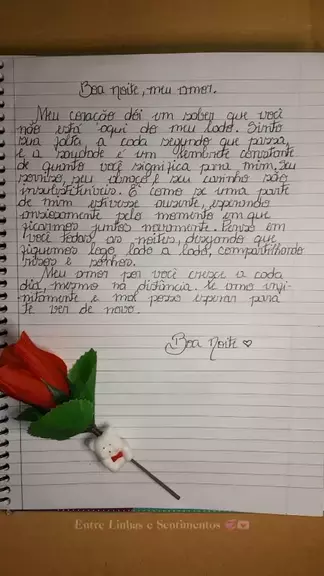 Boa noite, meu amor.
Meu coração dói em saber que você
não está aqui do meu lado. Sinto
sua falta a cada segundo que passa,
e a saudade é um lembrete constante
de quanto você significa para mim. Seu
sorriso, seu abraço e seu carinho são
insubstituíveis. É como se uma parte
de mim estivesse ausente, esperando
ansiosamente pelo momento em que
ficaremos juntos novamente. Penso em
você todas as noites, desejando que
fiquemos logo lado a lado, compartilhando
risos e sonhos.
Meu amor por você cresce a cada
dia, mesmo na distância. Te amo infi-
nitamente e mal posso esperar para
te ver de novo.
Boa Noite ♡
Entre Linhas e Sentimentos